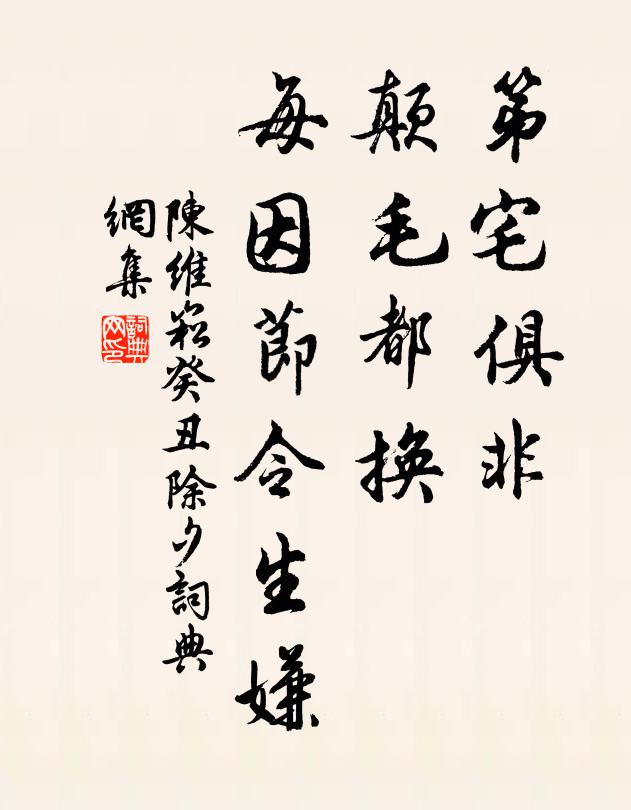 第宅俱非
顛毛都換
每因節令生嫌
陳維崧癸丑除夕詞典
網集
詞典網印